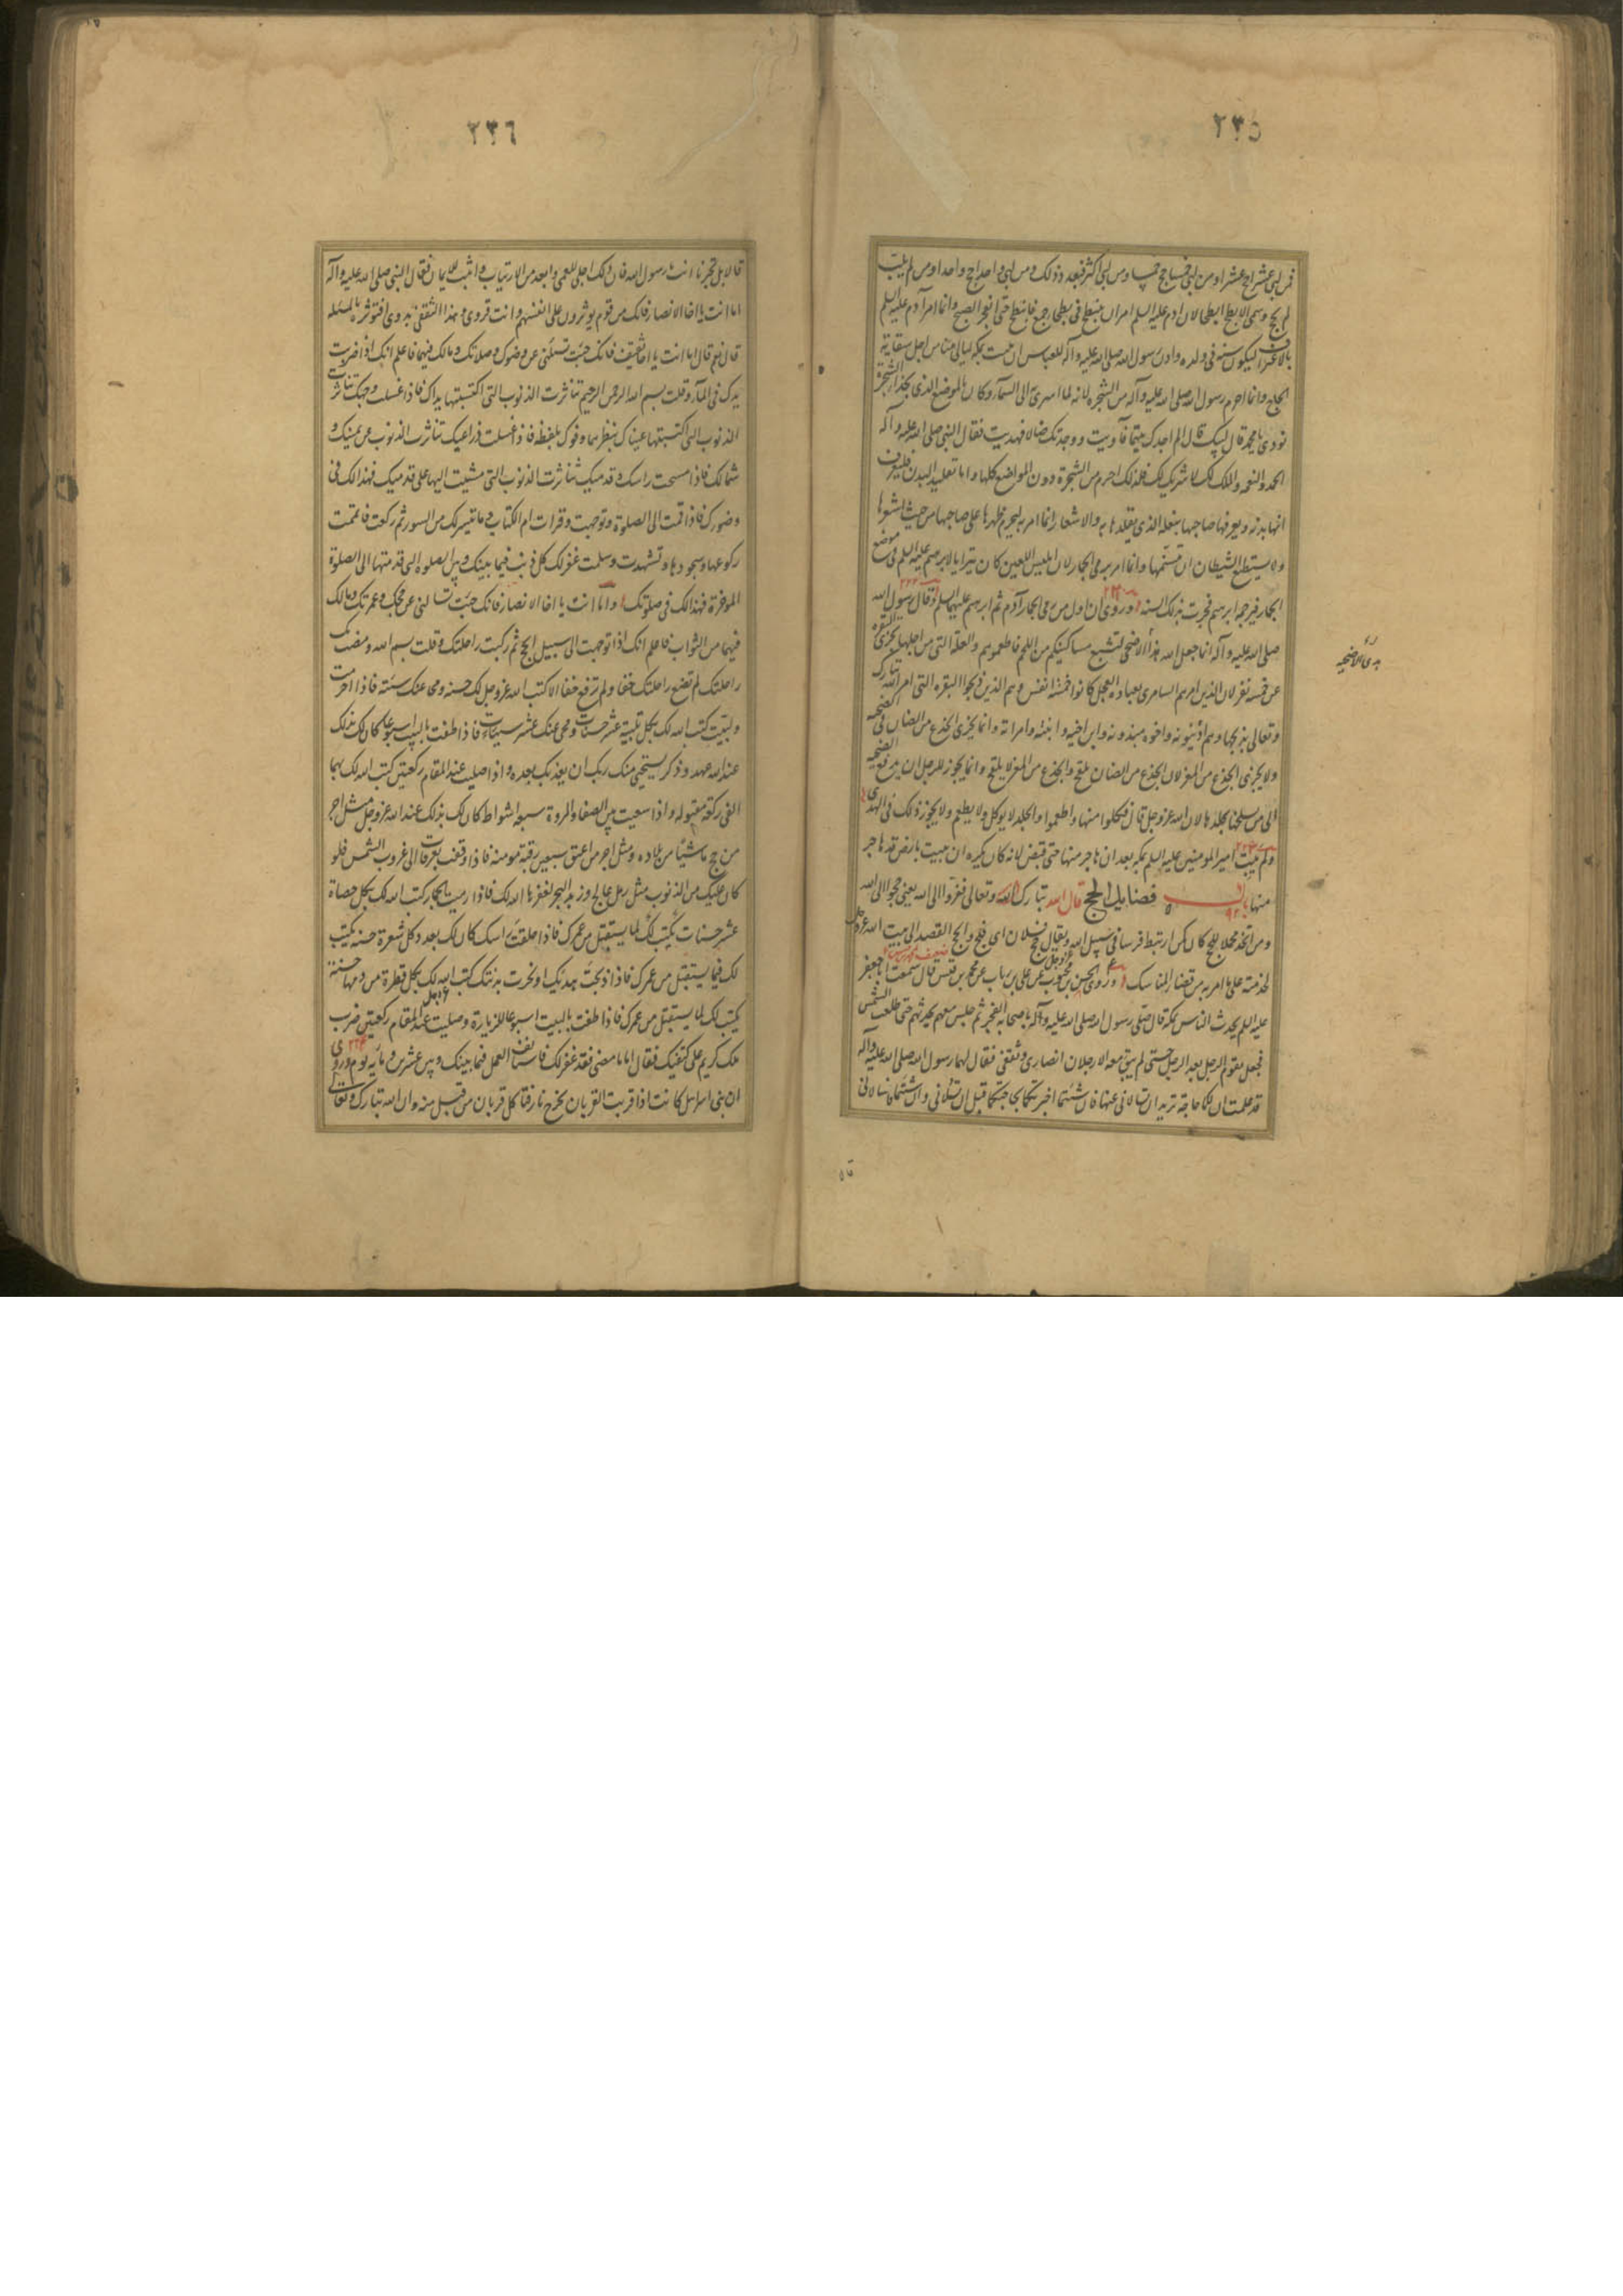 ٢٣٥
فمن لبى عشرا حج عشرا ومن لبى خمسا حج خمسا ومن لبى اكثر فبعدد ذلك ومن لبى واحدا حج واحدا ومن لم يلب
لم يحج وسمى الابطح ابطح لان ادم عليه السلم امر ان ينبطح فى بطحا جمع فانبطح حتى انفجر الصبح وانما امر آدم عليه السلم
بالاعتراف ليكون سنة فى ولده واذن رسول الله صلى الله عليه وآله للعباس ان يبيت بمكه ليالى منا من اجل سقاية
الحاج وانما احرم رسول الله صلى الله عليه وآله من الشجره لانه لما اسرى به الى السمآء وكان بالموضع الذى بحذاء الشجرة
نودى يا محمد قال لبيك قال الم اجدك يتيما فآويت ووجدتك ضالا فهديت فقال النبى صلى الله عليه وآله
الحمد والنعمه والملك لك لا شريك لك فلذلك احرم من الشجرة دون المواضع كلها واما تقليد البدن فليعرف
انها بدنه ويعرفها صاحبها بنعله الذى يقلدها به والاشعار انما امر به ليحرم ظهرها على صاحبها من حيث اشعرها
ولا يستطيع الشيطان ان يتسنمها وانما امر برمى الجمار لان ابليس اللعين كان يترايا لابرهيم عليه السلم فى موضع
الجمار فيرجمه ابرهيم فجرت بذلك السنه وروى ان اول من رمى الجمار آدم ثم ابرهيم عليهما السلم وقال رسول الله
صلى الله عليه وآله انما جعل الله هذا الاضحى لتشبع مساكينكم من اللحم فاطعموهم والعلة التى من اجلها تجزى البقره
عن خمسة نفر لان الذين امرهم السامرى بعبادة العجل كانوا خمسة انفس وهم الذين ذبحوا البقره التى امر الله تبارك
وتعالى بذبحها وهم اذينونه واخوه ميذونه وابن اخيه وابنته وامراته وانما يجزى الجذع من الضان فى الضحيه
ولا يجزى الجذع من المعز لان الجذع من الضان يلقح والجذع من المعز لا يلقح وانما يجوز للرجل ان يدفع الضحيه
الى من يسلخها بجلدها لان الله عز وجل قال فكلوا منها واطعموا والجلد لا يوكل ولا يطعم ولا يجوز ذلك فى الهدى
ولم يبت امير المومنين عليه السلم بمكه بعد ان هاجر منها حتى قبض لانه كان يكره ان يبيت بارض قد هاجر
منها باب فضايل الحج قال الله تبارك وتعالى ففروا الى الله يعنى حجوا الى الله
ومن اتخذ محملا للحج كان كمن ارتبط فرسا فى سبيل الله عز وجل ويقال حج فلان اى فلج والحج القصد الى بيت الله عز وجل
لخدمته على ما امر به من قضاء المناسك وروى الحسن بن محبوب عن على بن رياب عن محمد بن قيس قال سمعت ابا جعفر
عليه السلم يحدث الناس بمكة قال صلى رسول الله صلى الله عليه وآله باصحابه الفجر ثم جلس معهم يحدثهم حتى طلعت الشمس
فجعل يقوم الرجل بعد الرجل حتى لم يبق معه الا رجلان انصارى وثقفى فقال لهما رسول الله صلى الله عليه وآله
قد علمت ان لكما حاجة تريدان تسالانى عنها فان شئتما اخبرتكما بحاجتكما قبل ان تسألانى وان شئتما فاسالانى
٢٣٦
قالا بل تخبرنا انت يا رسول الله فان ذلك اجلى للعمى وابعد من الارتياب واثبت للايمان فقال النبى صلى الله عليه وآله
اما انت يا اخا الانصار فانك من قوم يوثرون على انفسهم وانت قروى وهذا الثقفى بدوى افتوثره بالمسئله
قال نعم قال اما انت يا اخا ثقيف فانك جئت تسئلنى عن وضوئك وصلاتك ومالك فيهما فاعلم انك اذا ضربت
يدك فى المآء وقلت بسم الله الرحمن الرحيم تناثرت الذنوب التى اكتسبتها يداك فاذا غسلت وجهك تناثرت
الذنوب التى اكتسبتها عيناك بنظرهما وفوك بلفظه فاذا غسلت ذراعيك تناثرت الذنوب عن يمينك و
شمالك فاذا مسحت راسك وقدميك تناثرت الذنوب التى مشيت اليها على قدميك فهذا لك فى
وضوءك فاذا قمت الى الصلوة وتوجهت وقرات ام الكتاب وما تيسر لك من السور ثم ركعت فاتممت
ركوعها وسجودها وتشهدت وسلمت غفر لك كل ذنب فيما بينك وبين الصلوه التى قدمتها الى الصلوة
الموخرة فهذا لك فى صلوتك واما انت يا اخا الانصار فانك جئت تسالنى عن حجك وعمرتك ومالك
فيهما من الثواب فاعلم انك اذا توجهت الى سبيل الحج ثم ركبت راحلتك وقلت بسم الله ومضت بك
راحلتك لم تضع راحلتك خفا ولم ترفع خفا الا كتب الله عز وجل لك حسنه ومحى عنك سيئة فاذا احرمت
ولبيت كتب الله لك بكل تلبية عشر حسنات ومحى عنك عشر سيئات فاذا طفت بالبيت اسبوعا كان لك بذلك
عند الله عهد وذكر يستحيى منك ربك ان يعذبك بعده واذا صليت عند المقام ركعتين كتب الله لك بهما
الفى ركعة مقبوله واذا سعيت بين الصفا والمروة سبعه اشواط كان لك بذلك عند الله عز وجل مثل اجر
من حج ماشيا من بلاده ومثل اجر من اعتق سبعين رقبة مومنه فاذا وقفت بعرفات الى غروب الشمس فلو
كان عليك من الذنوب مثل رمل عالج وزبد البحر لغفرها الله لك فاذا رميت الجمار كتب الله لك بكل حصاة
عشر حسنات تكتب لك لما يستقبل من عمرك فاذا حلقت راسك كان لك بعدد كل شعرة حسنه يكتب
لك فيما يستقبل من عمرك فاذا ذبحت هديك او نحرت بدنتك كتب الله لك بكل قطرة من دمها حسنة
يكتب لك لما يستقبل من عمرك فاذا طفت بالبيت اسبوعا للزيارة وصليت عند المقام ركعتين ضرب
ملك كريم على كتفيك فقال اما ما مضى فقد غفر لك فاستانف العمل فيما بينك وبين عشرين ومايه يوم وروى
ان بنى اسرايل كانت اذا قربت القربان تخرج نار فتاكل قربان من قبل منه وان الله تبارك وتعالى